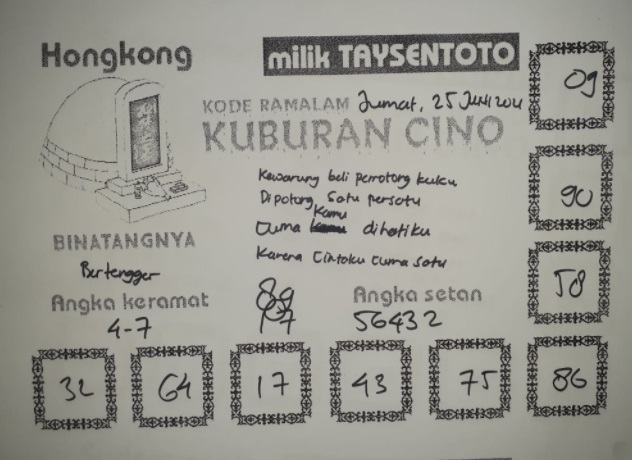 Hongkong
milik TAYSENTOTO
KODE RAMALAM Jumat, 25 Juni 2021
KUBURAN CINO
Kewarung beli pemotong kuku
Dipotong satu persatu
Cuma Kamu dihatiku
Karena Cintaku Cuma Satu
BINATANGNYA
Bertengger
Angka keramat
4-7
89
17
Angka setan
56432
09
90
58
32
64
17
43
75
86